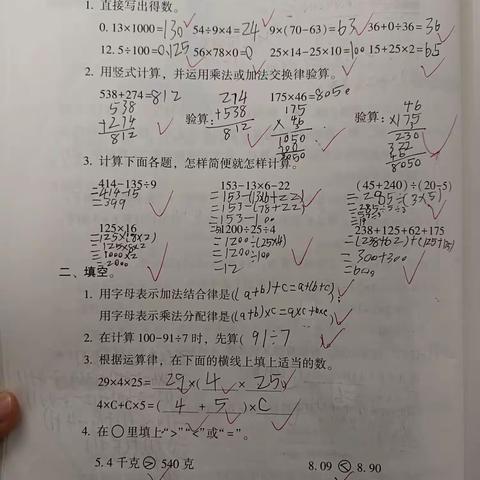 1. 直接写出得数。
0.13×1000=130 54÷9×4=24 9×(70-63)=63 36+0÷36=36
12.5÷100=0.125 56×78×0=0 25×14-25×10=100 15+25×2=65
2. 用竖式计算，并运用乘法或加法交换律验算。
538+274=812 175×46=8050
538 274 175 46
+274 验算: +538 ×46 验算: ×175
812 812 1050 230
700 322
8050 46
8050
3. 计算下面各题，怎样简便就怎样计算。
414-135÷9 153-13×6-22 (45+240)÷(20-5)
=414-15 =153-(13×6+22)
=399 =153-(78+22)
=153-100
125×16 1200÷25÷4 238+125+62+175
=125×(8×2) =1200÷(25×4) =(238+62)+(125+175)
=125×8×2 =1200÷100 =300+300
=1000×2 =12 =600
=2000
二、填空。
1. 用字母表示加法结合律是((a+b)+c=a+(b+c))。
用字母表示乘法分配律是((a+b)×c=a×c+b×c
2. 在计算 100-91÷7 时，先算( 91÷7
3. 根据运算律，在下面的横线上填上适当的数。
29×4×25= 29 ×( 4 × 25)
4×C+C×5=( 4 + 5 )×C
4. 在○里填上“>”“<”或“=”。
5.4 千克 > 540 克 8.09 < 8.90